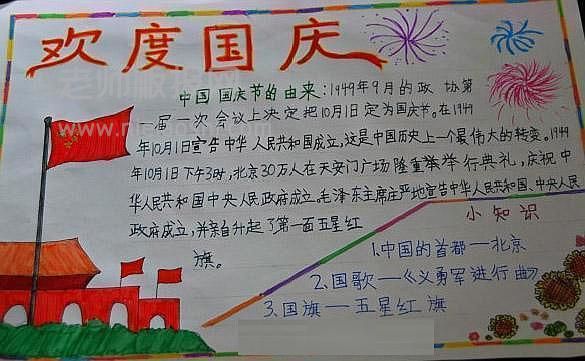 欢度国庆
中国国庆节的由来:1949年9月的政协第
一届一次会议上决定把10月1日定为国庆节。在1949
年10月1日宣告中华人民共和国成立,这是中国历史上一个最伟大的转变。1949
年10月1日下午3时,北京30万人在天安门广场隆重举行典礼,庆祝中
华人民共和国中央人民政府成立。毛泽东主席庄严地宣告中华人民共和国、中央人民
政府成立,并亲自升起了第一面五星红
旗。
小知识
1.中国的首都一北京
2.国歌一《义勇军进行曲》
3.国旗一五星红旗